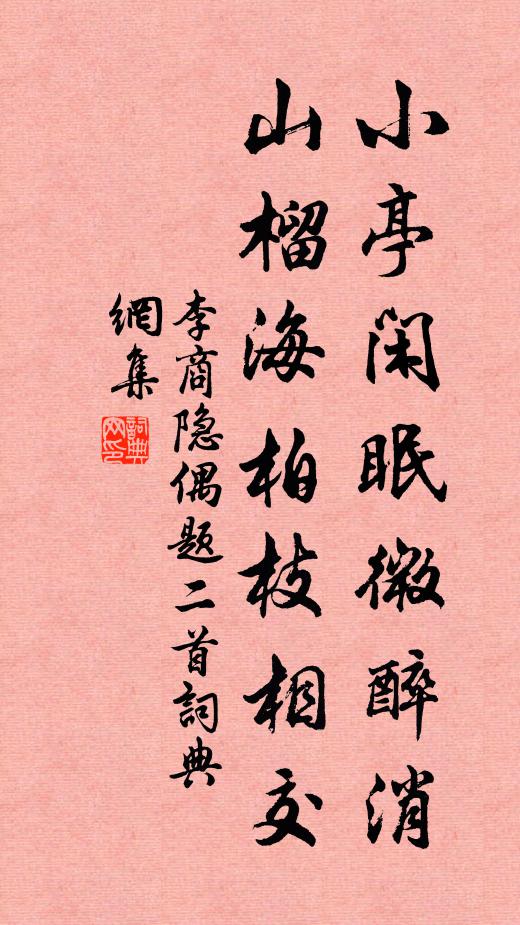 小亭闲眠微醉消
山榴海柏枝相交
李商隐偶题二首詞典
網集
詞典
网印